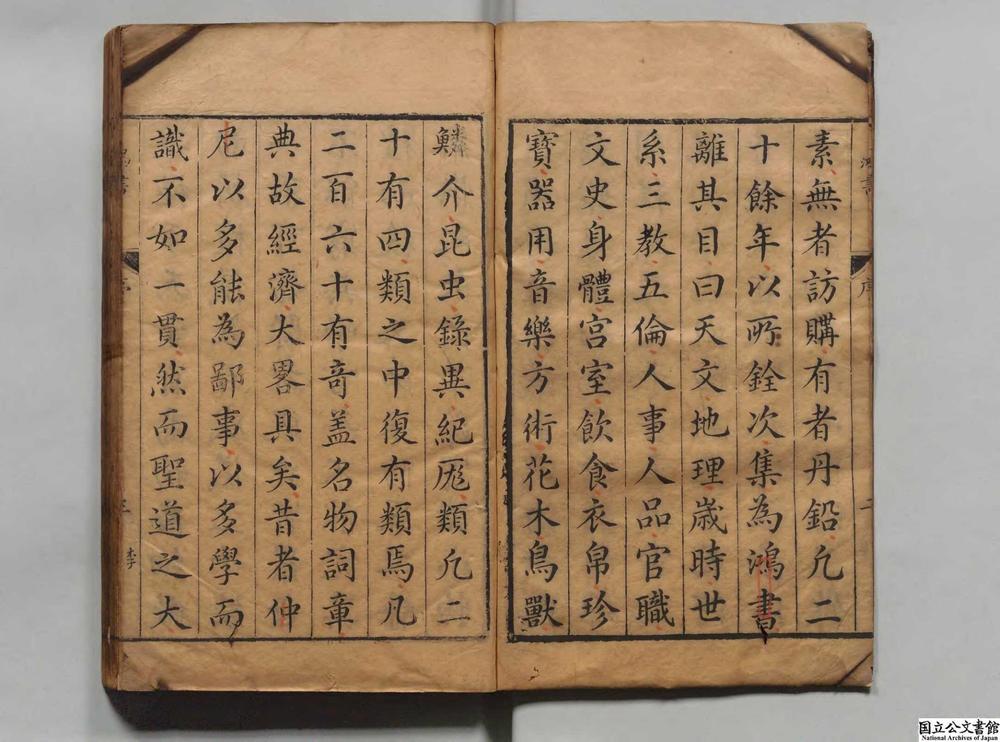 素無者訪購有者丹鉛凢二
十餘年以所銓次集為鴻書
離其目曰天文地理歲時世
系三教五倫人事人品官職
文史身體宮室飲食衣帛珍
寶器用音樂方術花木鳥獸
鱗介昆虫錄異紀厖類凢二
十有四類之中復有類焉凡
二百六十有奇盖名物詞章
典故經濟大畧具矣昔者仲
尼以多能為鄙事以多學而
識不如一貫然而聖道之大
鴻書
序
二
三
国立公文書館
National Archives of Japan